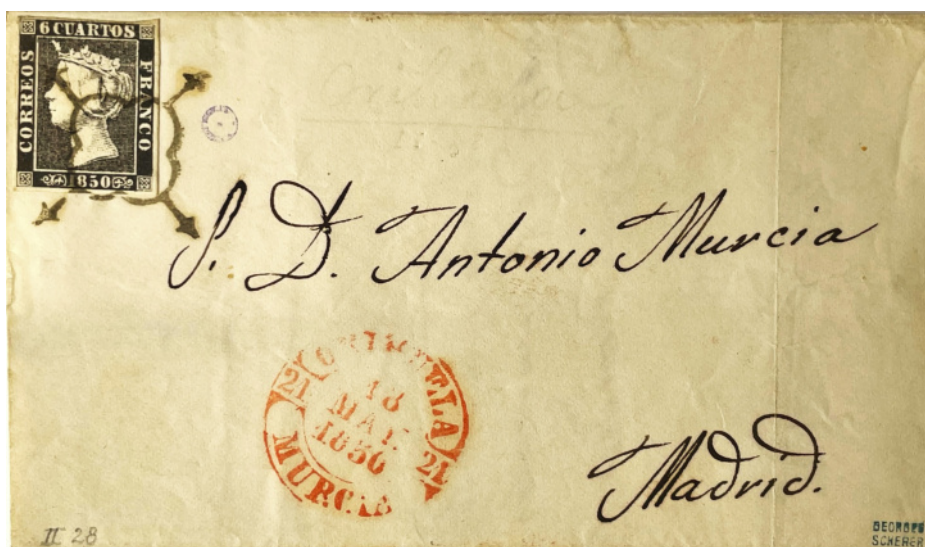 6 CUARTOS
CORREOS
FRANCO
1850
S. D. Antonio Murcia
ORIHUELA
21 21
18
MAY
1850
MURCIA
Madrid.
II 28
GEORGES
SCHERER